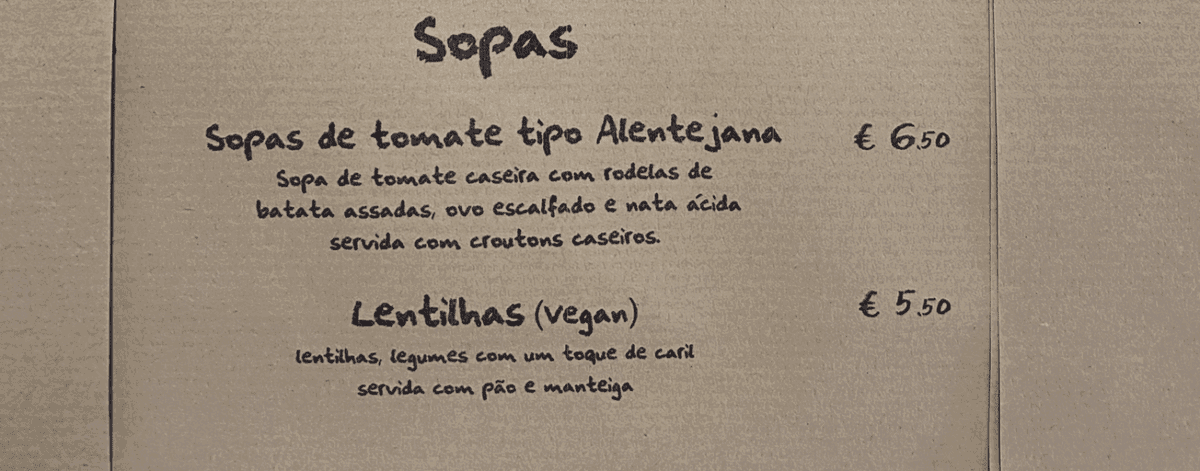 Sopas
Sopas de tomate tipo Alentejana € 6.50
Sopa de tomate caseira com rodelas de
batata assadas, ovo escalfado e nata ácida
servida com croutons caseiros.
Lentilhas (vegan) € 5.50
lentilhas, legumes com um toque de caril
servida com pão e manteiga